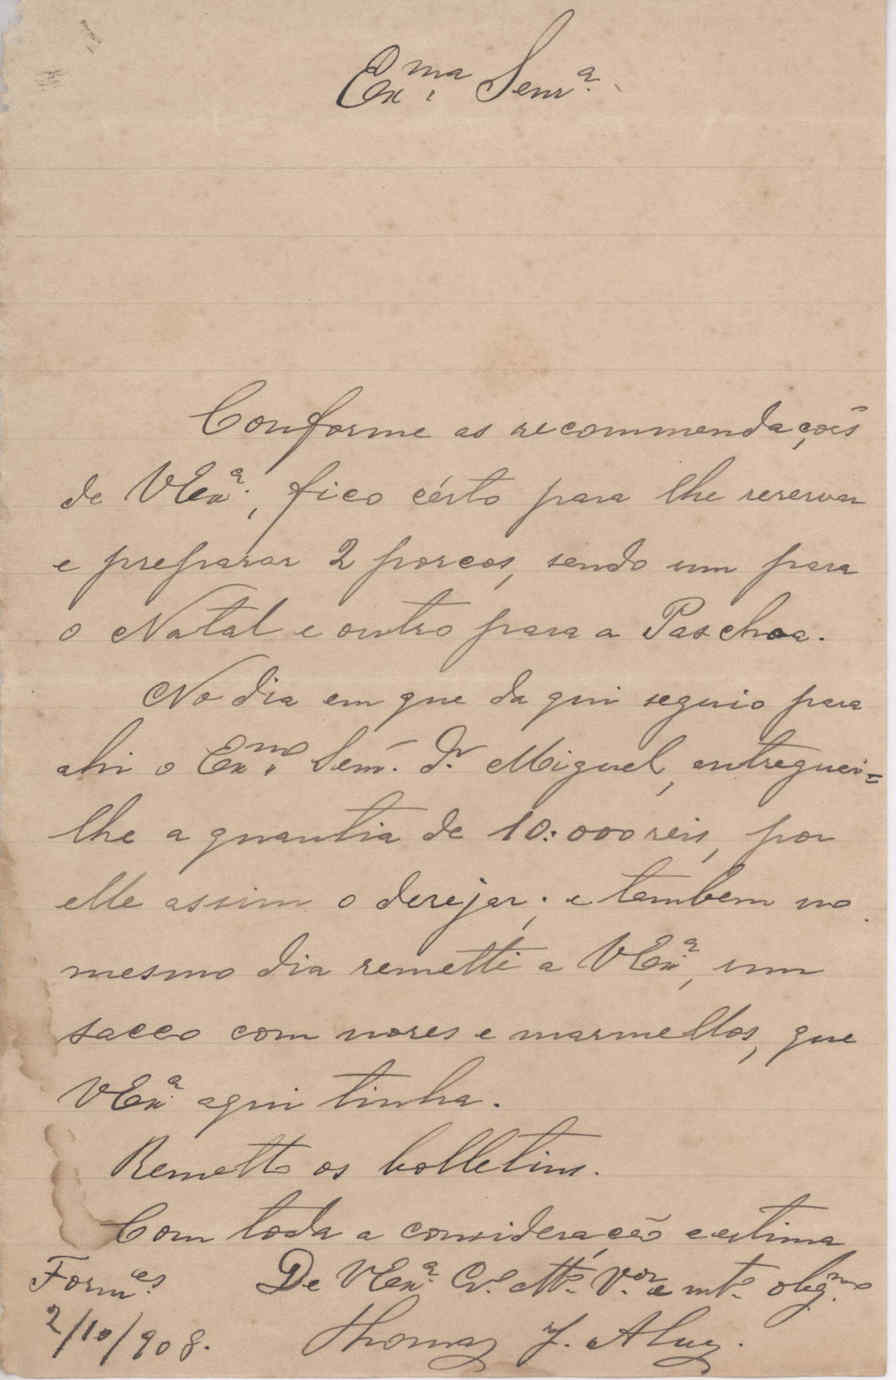 Exma Senra.
Conforme as recommendações
de VExa., fico cérto para lhe reservar
e preparar 2 porcos, sendo um para
o Natal e outro para a Paschoa.
No dia em que da qui seguio para
ahi o Exmo. Senr. Dr. Miguel, entreguei=
lhe a quantia de 10:000 reis, por
elle assim o desejar; e tambem no
mesmo dia remetti a VExa., um
sacco com nozes e marmellos, que
VExa. aqui tinha.
Remetto os bolletins.
Com toda a consideração e estima
De VExa. Cro. Atto. Vor. e mto. obgmo
Formes.
2/10/908.
Thomaz J.